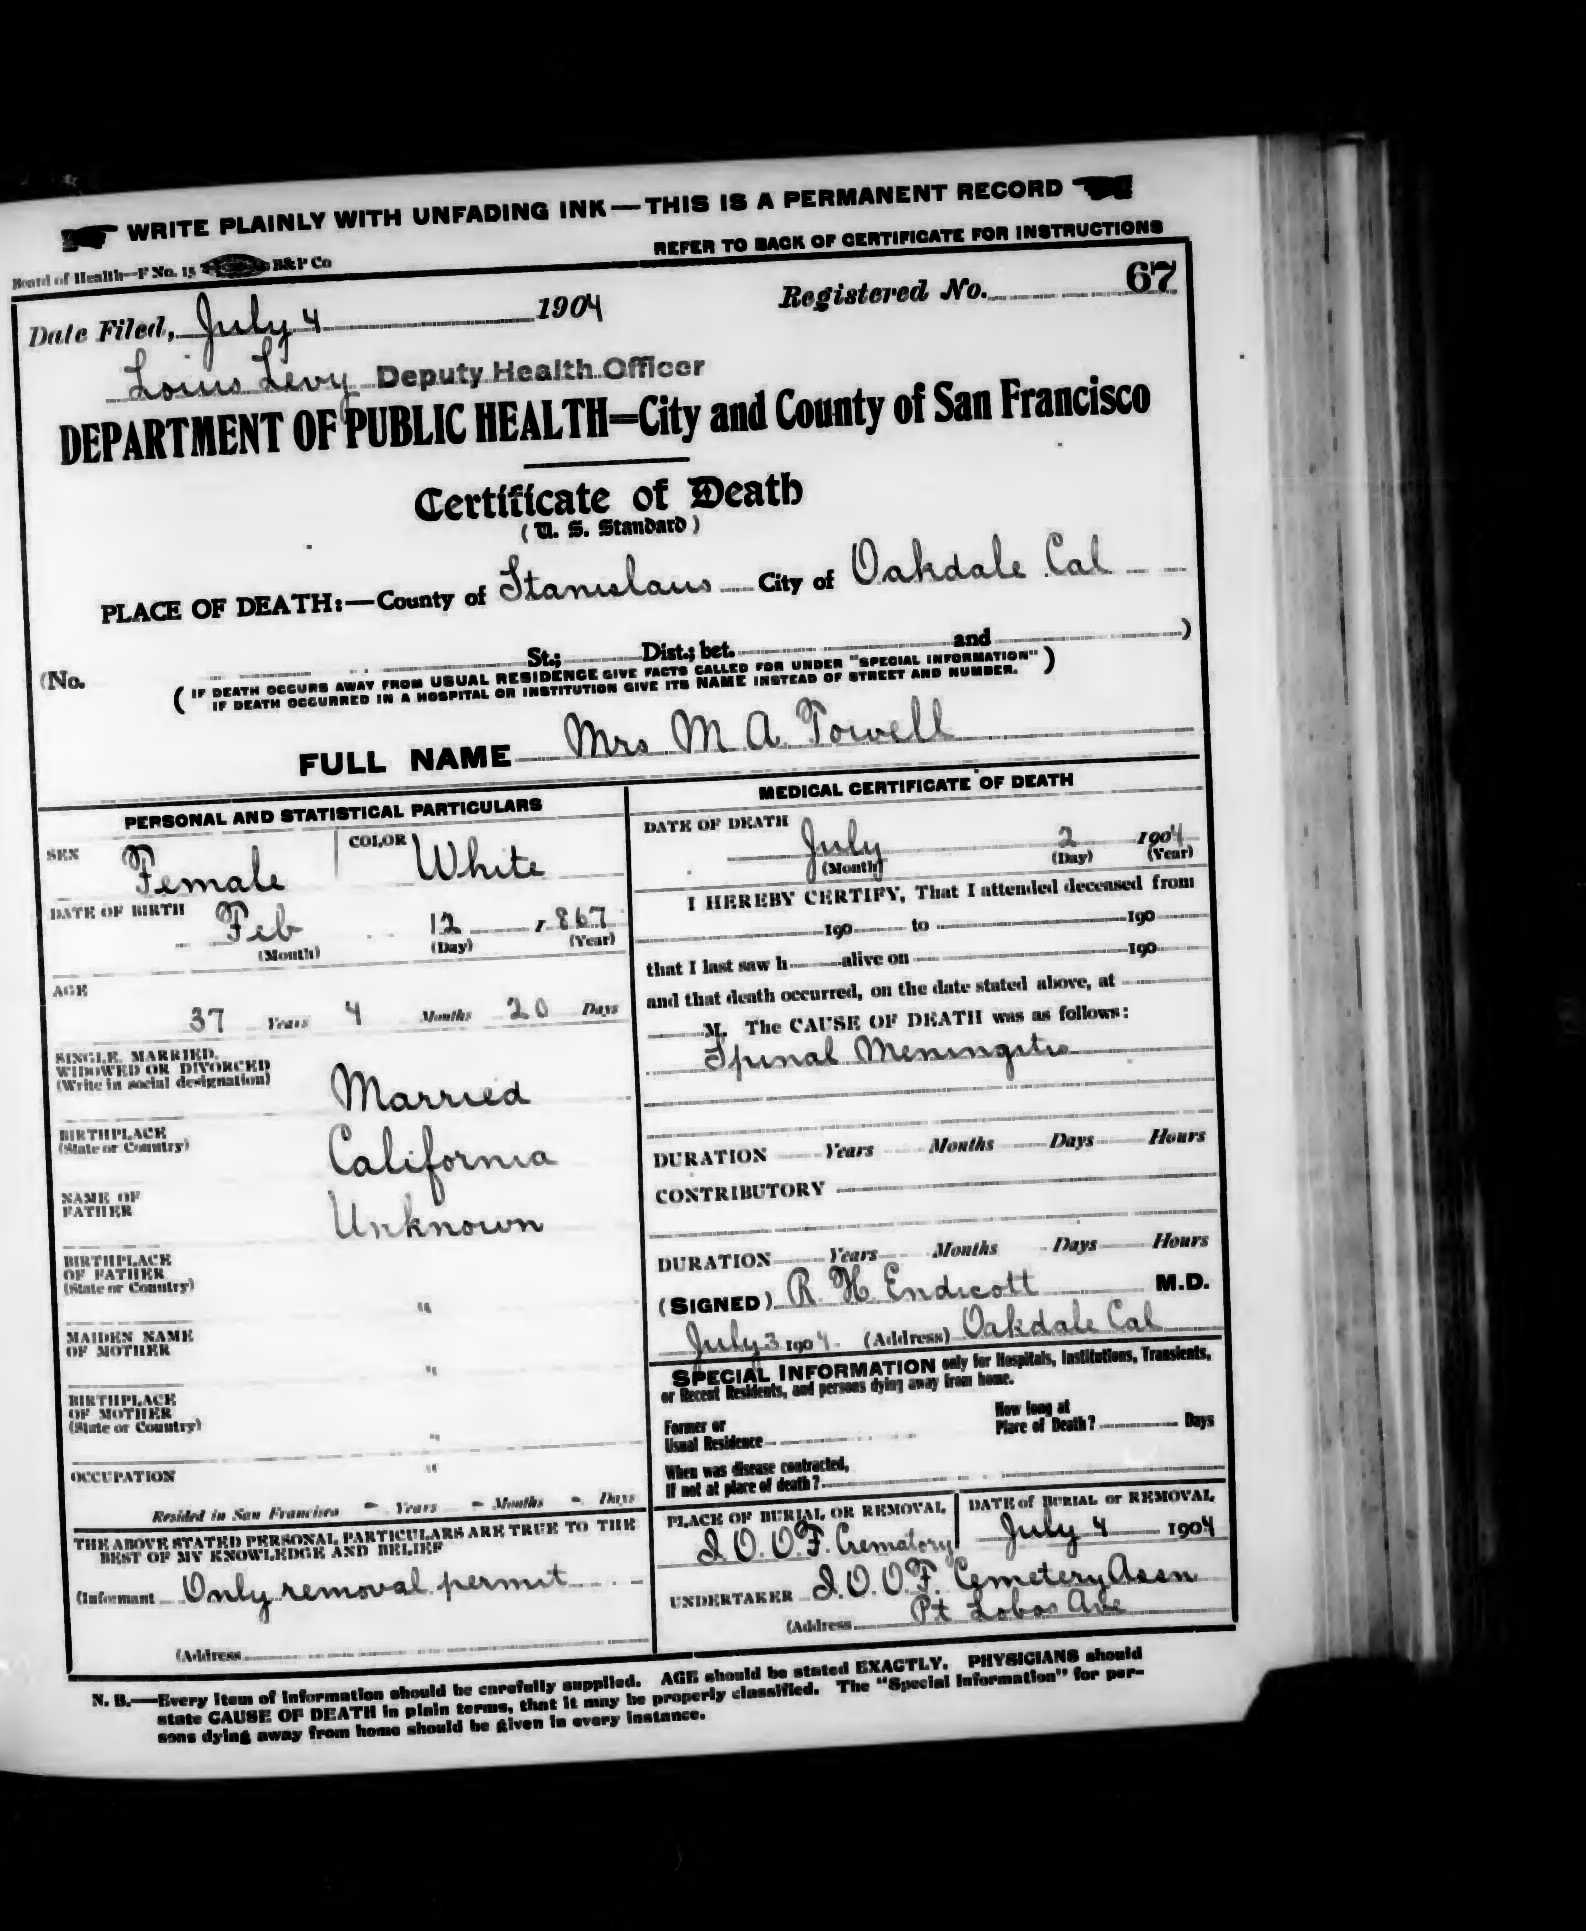 WRITE PLAINLY WITH UNFADING INK—THIS IS A PERMANENT RECORD
REFER TO BACK OF CERTIFICATE FOR INSTRUCTIONS
Board of Health—F No. 15 B&P Co
Date Filed, July 4 1904 Registered No. 67
Louis Levy Deputy Health Officer
DEPARTMENT OF PUBLIC HEALTH=City and County of San Francisco
Certificate of Death
( U. S. Standard )
PLACE OF DEATH:—County of Stanislaus City of Oakdale Cal
(No. St.; Dist.; bet. and )
( IF DEATH OCCURS AWAY FROM USUAL RESIDENCE GIVE FACTS CALLED FOR UNDER "SPECIAL INFORMATION" )
IF DEATH OCCURRED IN A HOSPITAL OR INSTITUTION GIVE ITS NAME INSTEAD OF STREET AND NUMBER.
FULL NAME Mrs M A Powell
PERSONAL AND STATISTICAL PARTICULARS
SEX Female COLOR White
DATE OF BIRTH Feb 12 1867
(Month) (Day) (Year)
AGE
37 Years 4 Months 20 Days
SINGLE, MARRIED,
WIDOWED OR DIVORCED
(Write in social designation) Married
BIRTHPLACE
(State or Country) California
NAME OF
FATHER Unknown
BIRTHPLACE
OF FATHER
(State or Country) "
MAIDEN NAME
OF MOTHER "
BIRTHPLACE
OF MOTHER
(State or Country) "
OCCUPATION "
Resided in San Francisco - Years - Months - Days
THE ABOVE STATED PERSONAL PARTICULARS ARE TRUE TO THE
BEST OF MY KNOWLEDGE AND BELIEF
(Informant Only removal permit
(Address
MEDICAL CERTIFICATE OF DEATH
DATE OF DEATH
July 2 1904
(Month) (Day) (Year)
I HEREBY CERTIFY, That I attended deceased from
190 to 190
that I last saw h alive on 190
and that death occurred, on the date stated above, at
M. The CAUSE OF DEATH was as follows:
Spinal Meningitis
DURATION Years Months Days Hours
CONTRIBUTORY
DURATION Years Months Days Hours
(SIGNED) R H Endicott M.D.
July 3 1904. (Address) Oakdale Cal
SPECIAL INFORMATION only for Hospitals, Institutions, Transients,
or Recent Residents, and persons dying away from home.
Former or
Usual Residence
How long at
Place of Death? Days
When was disease contracted,
If not at place of death?
PLACE OF BURIAL OR REMOVAL
I.O.O.F. Crematory
DATE of BURIAL or REMOVAL
July 4 1904
UNDERTAKER I.O.O.F. Cemetery Assn
(Address Pt Lobos Ave
N. B.—Every item of information should be carefully supplied. AGE should be stated EXACTLY. PHYSICIANS should
state CAUSE OF DEATH in plain terms, that it may be properly classified. The "Special Information" for per-
sons dying away from home should be given in every instance.